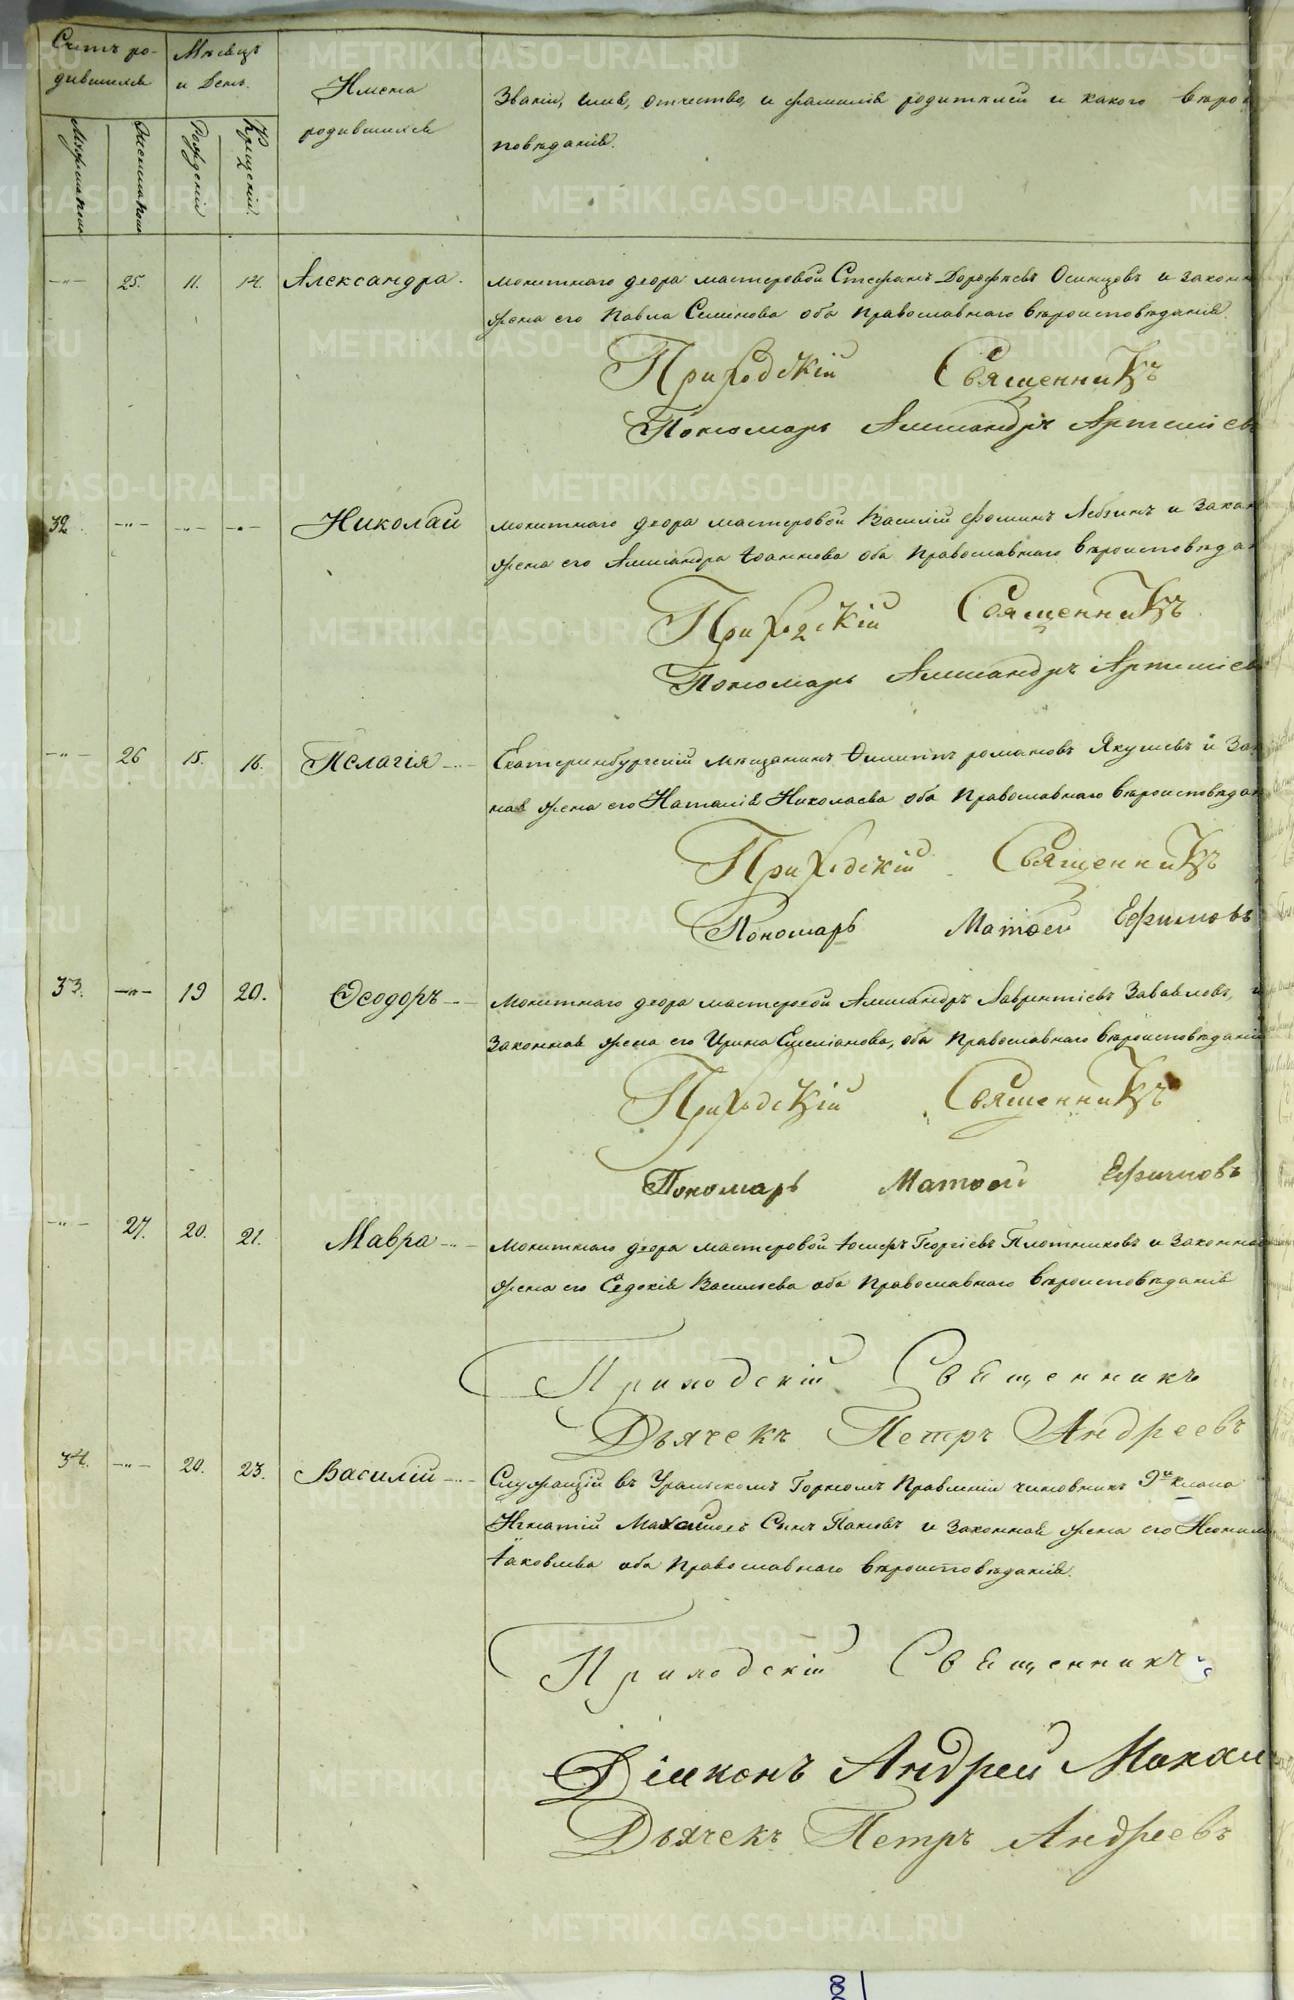 Счетъ ро-
дившихся
Мѣсяцъ
и День.
Имена
родившихся
Званіе, имя, отчество, и фамилія родителей и какого вѣро
повѣданія.
Мужеска пола
Женска пола
Рожденія
Крещенія.
—"— 25. 11. 14. Александра. монетнаго двора мастеровой Стефанъ Дорофѣевъ Осинцовъ и закон
жена его Павла Семенова оба Православнаго вѣроисповѣданія.
Приходскій Священникъ
Пономарь Александръ Артеміев
32 —"— —"— —"— Николай монетнаго двора мастеровой Василій Фоминъ и закон
жена его Александра Іоаннова оба Православнаго вѣроисповѣдан
Приходскій Священникъ
Пономарь Александръ Артеміев
—"— 26 15. 16. Пелагія —"— Екатеринбургскій мѣщанинъ Филиппъ романовъ Якушевъ и Зак
ная жена его Наталія Николаева оба Православнаго вѣроисповѣдан
Приходскій Священникъ
Пономарь Матѳей Ефимовъ
33. —"— 19 20. Ѳеодоръ —"— Монетнаго двора мастеровой Александръ Лаврентіевъ и
Законная жена его Ирина Емеліанова, оба Православнаго вѣроисповѣданія
Приходскій Священникъ
Пономарь Матѳей Ефимовъ
—"— 27. 20. 21. Мавра —"— Монетнаго двора мастеровой Іосифъ Георгіевъ Плотниковъ и Законная
жена его Евдокія Васильева оба Православнаго вѣроисповѣданія
Приходскій Священникъ
Дьячекъ Петръ Андреевъ
34. —"— 20. 23. Василій —"— Служащій въ Уральскомъ Горномъ Правленіи чиновникъ 9го класа
Игнатій Сынъ Пановъ и Законная жена его
Іаковлева оба Православнаго вѣроисповѣданія.
Приходскій Священникъ
Діаконъ Андрей
Дьячекъ Петръ Андреевъ
METRIKI.GASO-URAL.RU